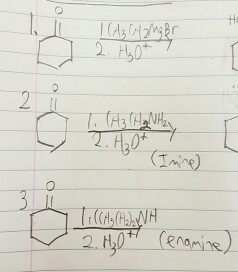 1.
O
1. CH3CH2MgBr
2. H3O+
2
O
1. CH3CH2NH2
2. H3O+
(Imine)
3
O
1. (CH3CH2)2NH
2. H3O+
(enamine)